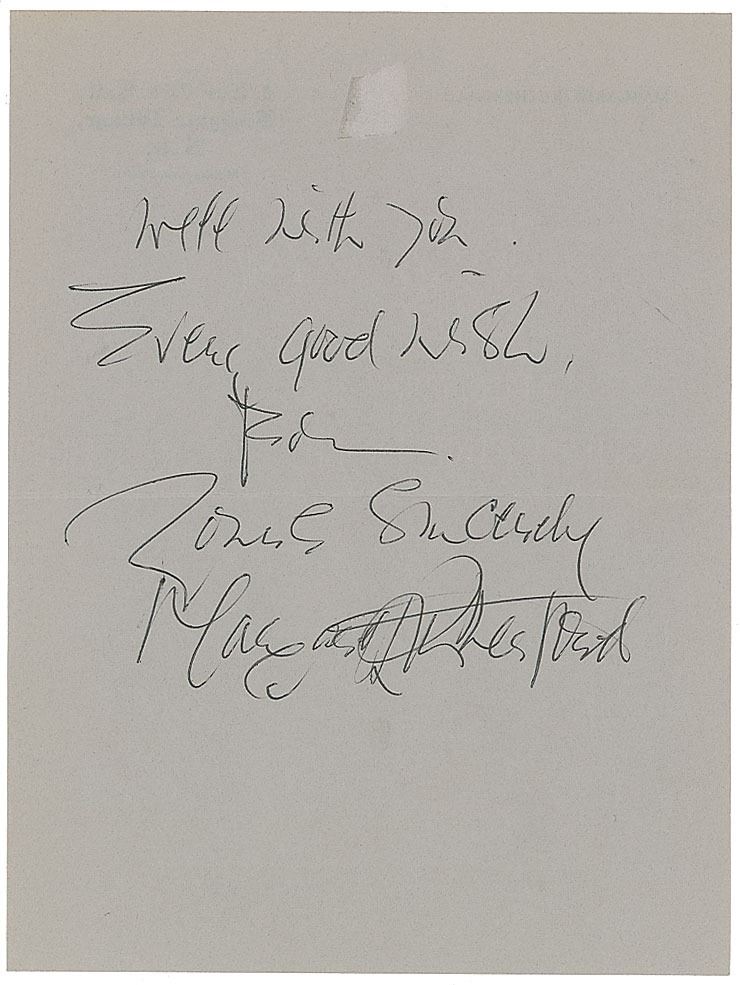 well with you.
Every good wish,
from
Yours Sincerely
Margaret Rutherford